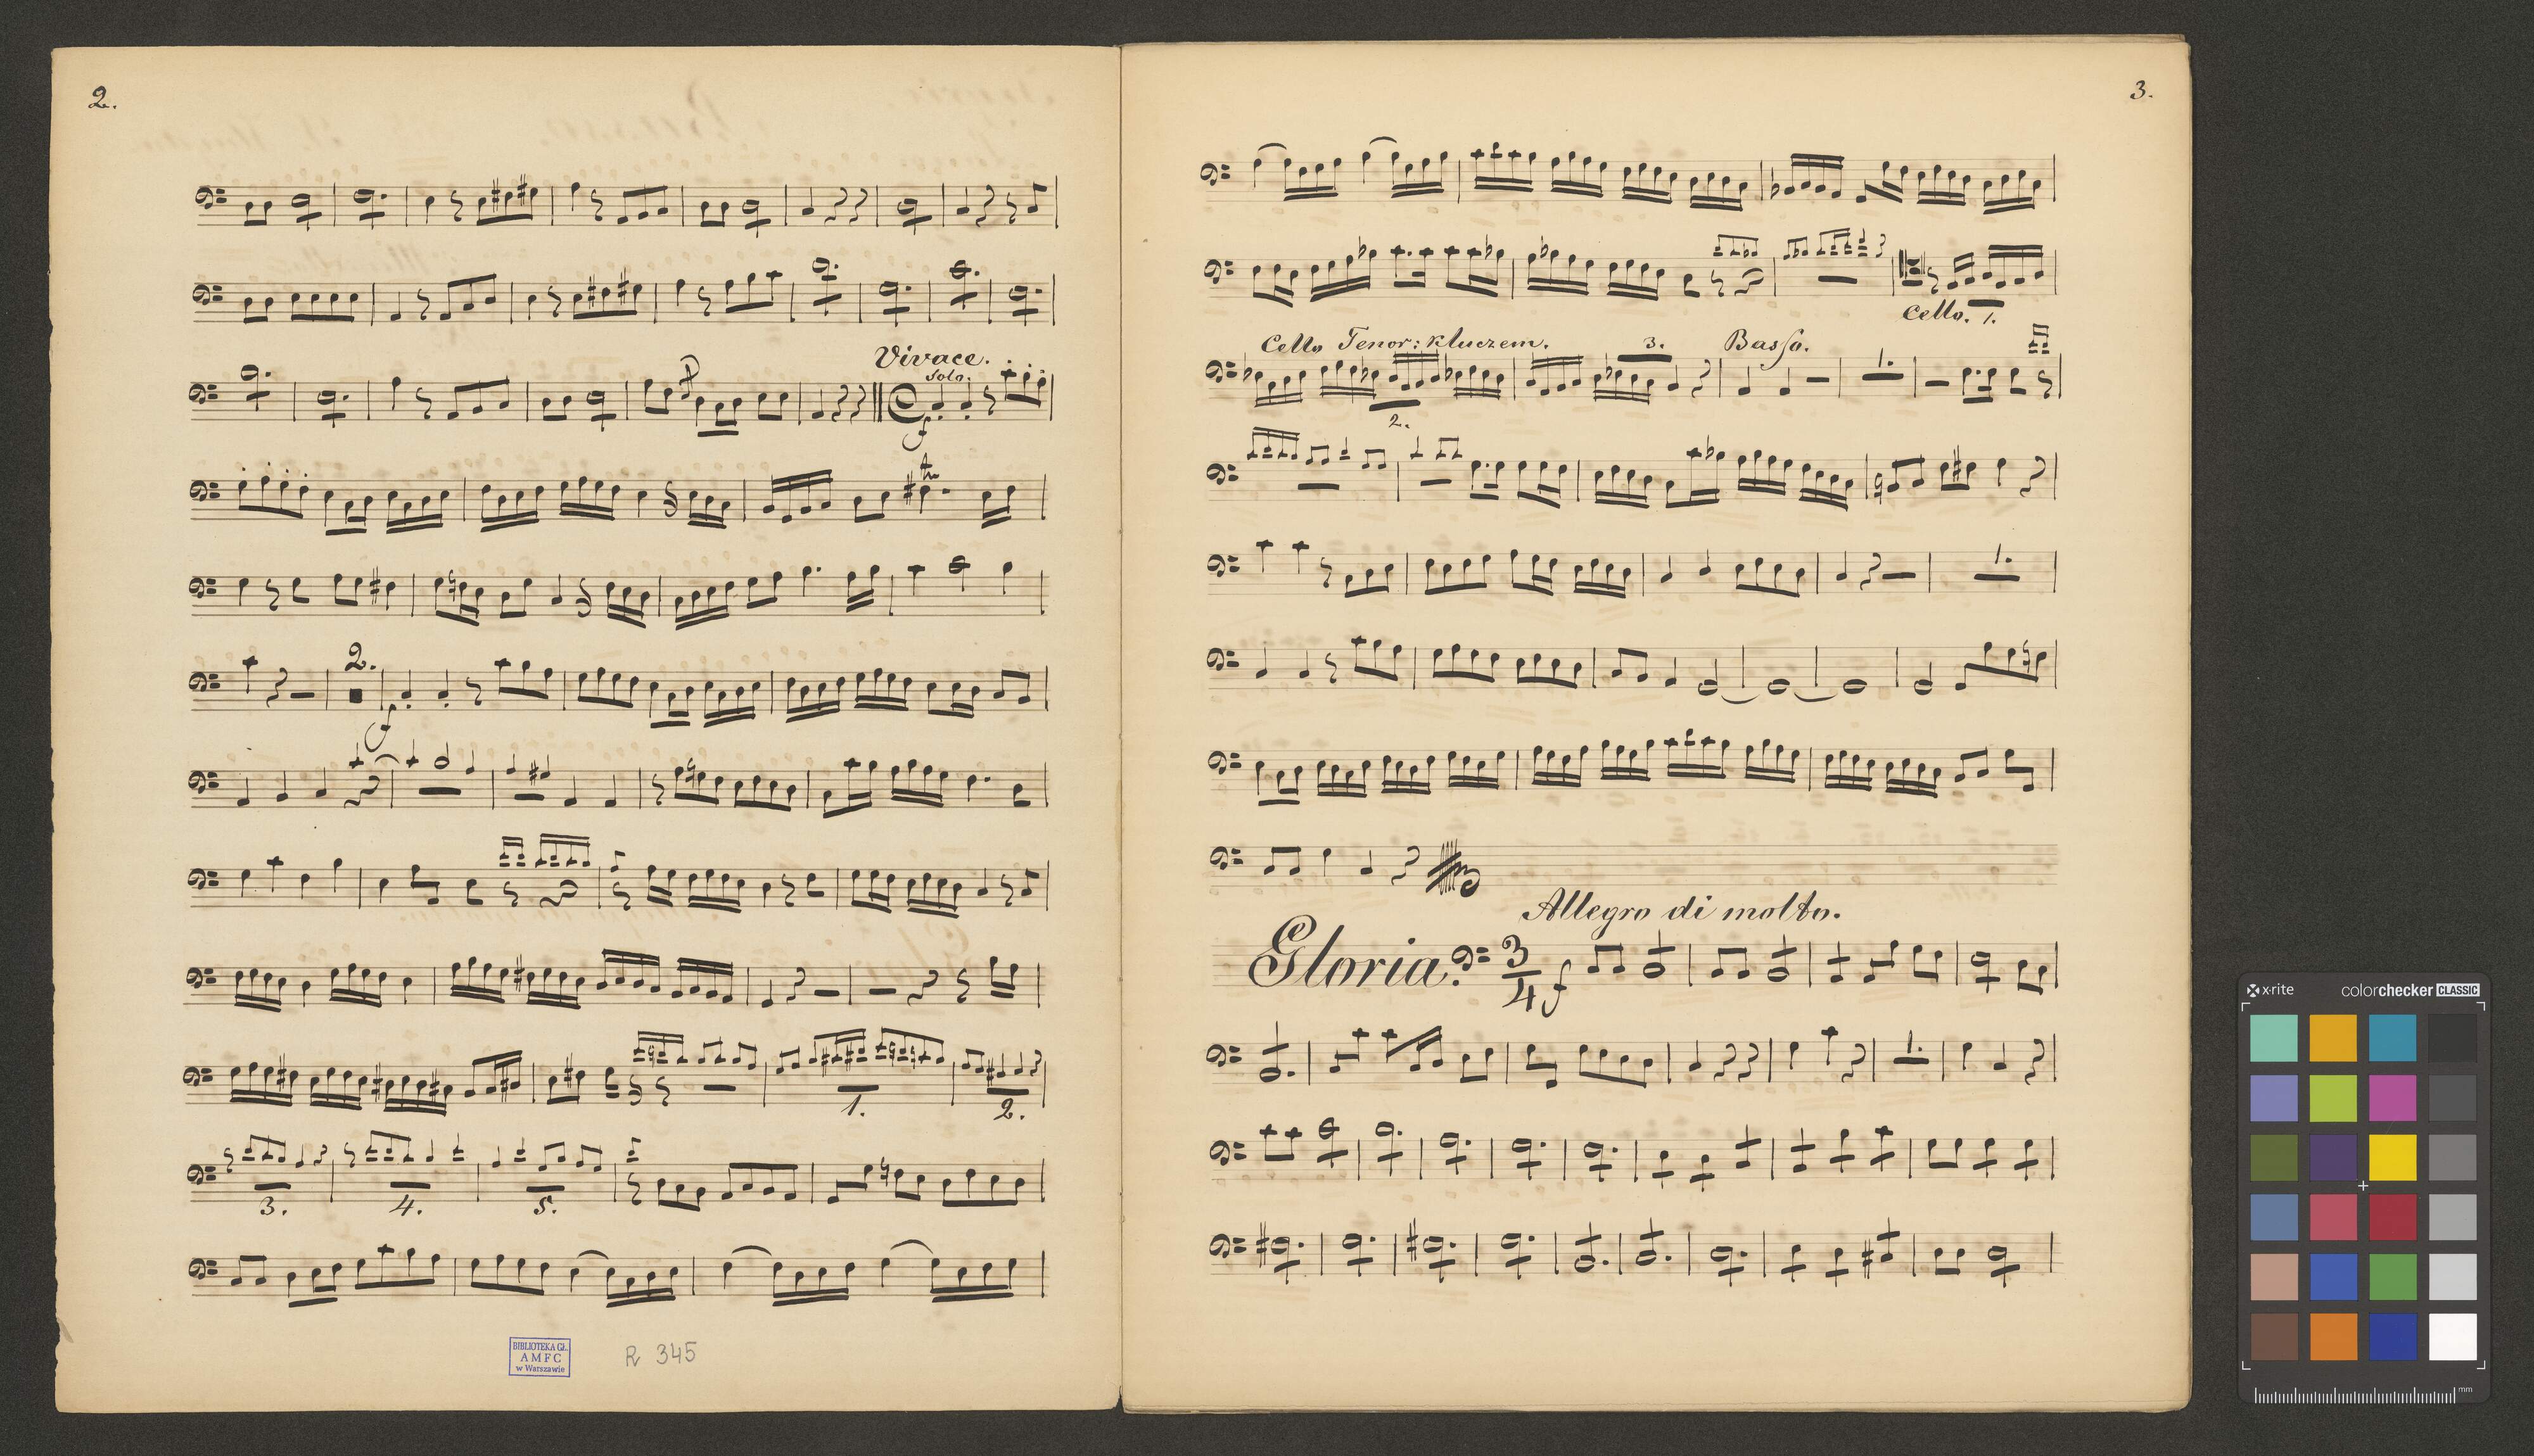 2.
Vivace.
Solo.
f
tr
2.
f
1.
2.
3.
4.
5.
BIBLIOTEKA GŁ.
AMFC
w Warszawie
R 345
3.
Cello. 1.
Cello Tenor: kluczem.
3.
Basso.
1.
2.
1.
Allegro di molto.
Gloria.
3
4
f
1.
x-rite
colorchecker CLASSIC
mm